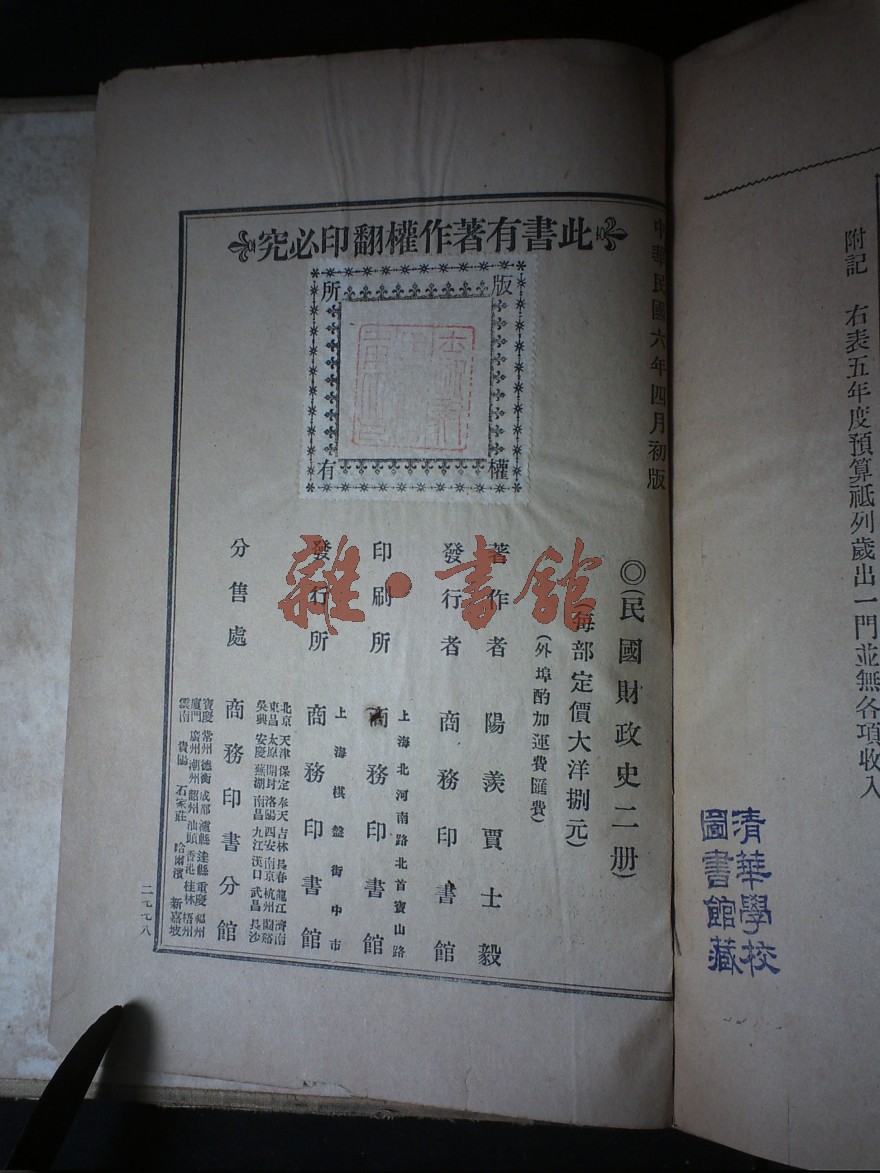 附記　右表五年度預算祗列歲出一門並無各項收入
清華學校
圖書館藏
此書有著作權翻印必究
版權所有
中華民國六年四月初版
◎(民國財政史二册)
(每部定價大洋捌元)
(外埠酌加運費匯費)
著作者　陽羨賈士毅
發行者　商務印書館
上海北河南路北首寶山路
印刷所　商務印書館
上海棋盤街中市
發行所　商務印書館
北京 天津 保定 奉天 吉林 長春 龍江 濟南
東昌 太原 開封 洛陽 西安 南京 杭州 蘭谿
吳興 安慶 蕪湖 南昌 九江 漢口 武昌 長沙
分售處　商務印書分館
寶慶 常州 德 衡 成都 瀘縣 達縣 重慶 福州
廈門 廣州 潮州 韶州 汕頭 香港 桂林 梧州
雲南 貴陽 石家莊 哈爾濱 新嘉坡
二七七八
雜·書館